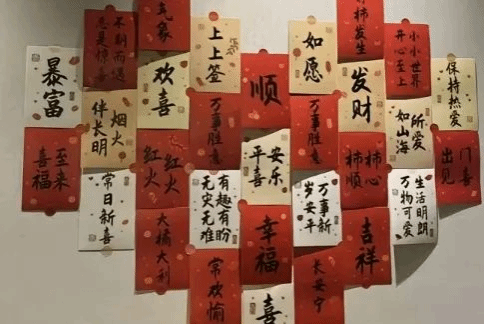 暴富
喜至
福来
不期而遇
总是惊喜
烟火
伴长明
常日新喜
气象
欢喜
红火
红火
大橘大利
上上签
万事胜意
有趣有盼
无灾无难
常欢愉
顺
平安
喜乐
幸福
喜
如愿
万事胜意
万事新
岁安平
长安宁
发生
发财
柿柿
顺心
吉祥
小小世界
开心至上
所爱
如山海
生活明朗
万物可爱
保持热爱
出门
见喜